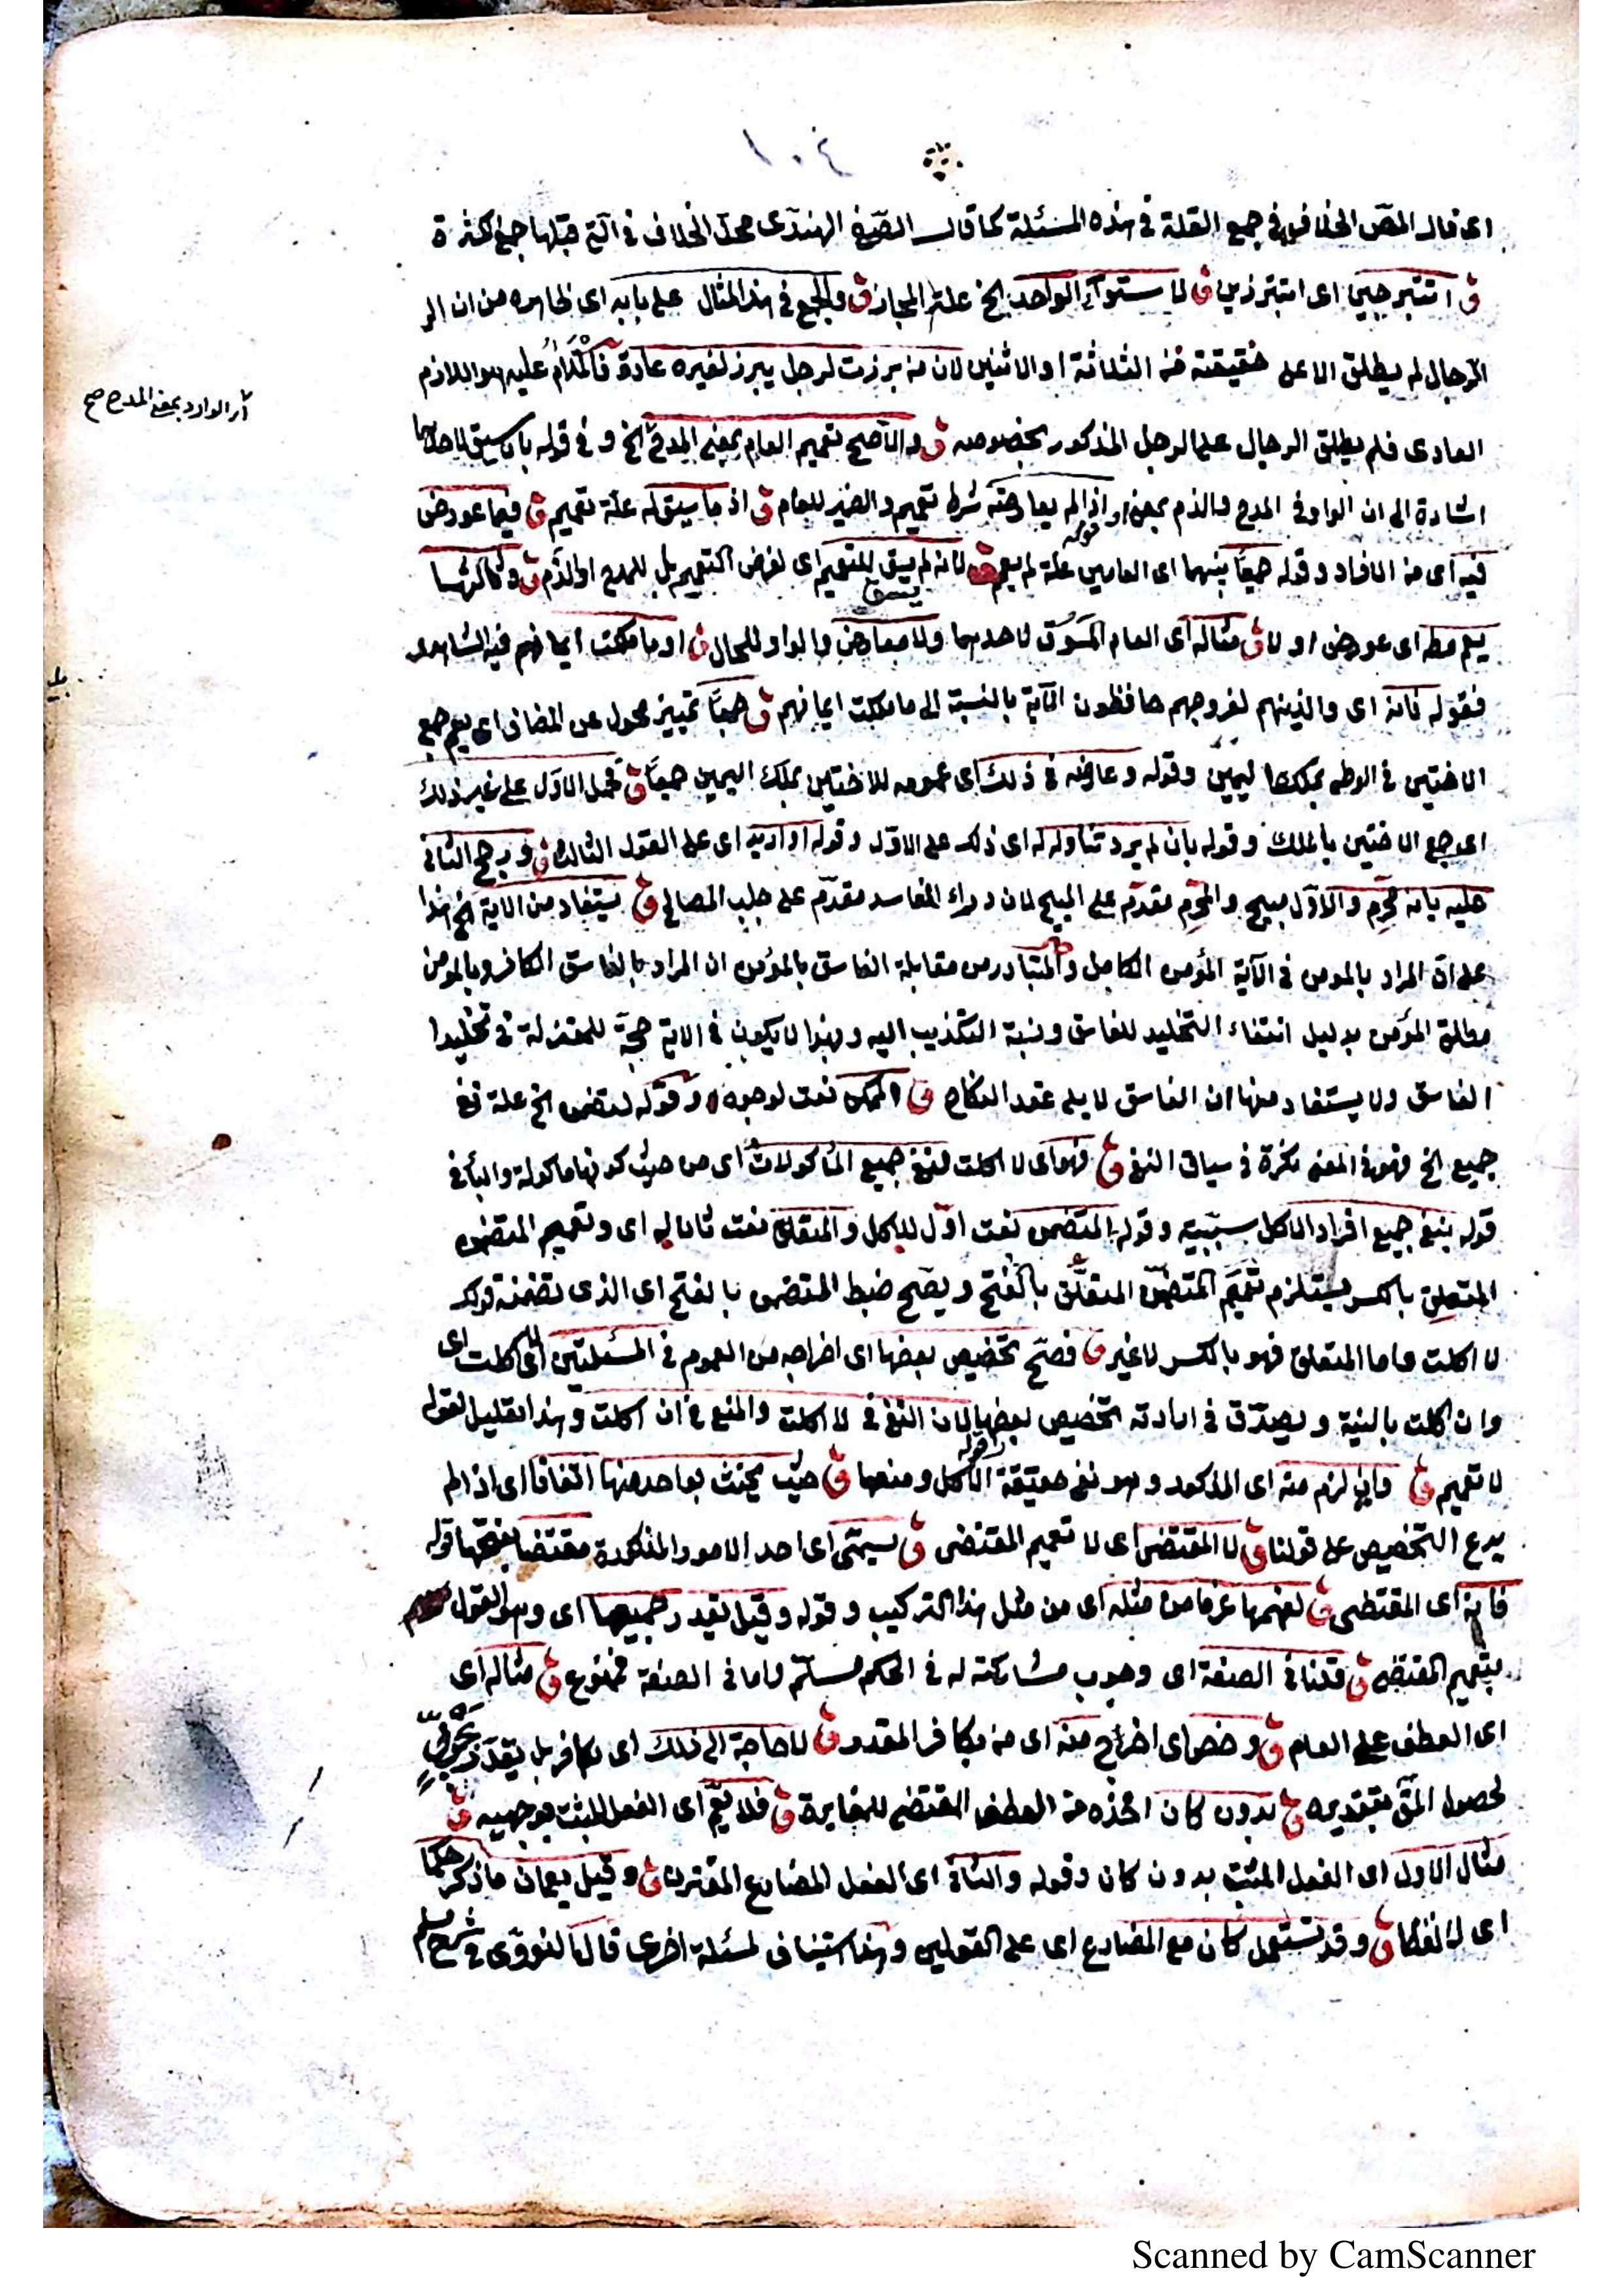 ١٠٤
اى قال المص الخلاف في جمع القلة في هذه المسئلة كما قال الصفي الهندى محل الخلاف في التي قبلها جمع الكثرة
ق اتتبرجين اى اتتبرزين ق لاستواء الواحد الخ علة المجاز ق والجمع في هذا المثال على بابه اى ظاهره من ان الر
الرجال لم يطلق الا على حقيقته من الثلاثة او الاثنين لان من برزت لرجل يبرز لغيره عادة فالكلام عليه هو اللازم
العادى فلم يطلق الرجال على الرجل المذكور بخصوصه ق والاصح تعميم العام بمعنى المدح الخ و في قوله بان سيق لاحدهما
اشارة الى ان الواو في المدح والذم بمعنى او اذا لم يعارضه شرط تعميم والضمير للعام ق اذ ما سيق له علة تعميم ق فيما عورض
فيه اى من الافراد وقوله جمعا بينهما اى العامين علة لم يعم ق لانه لم يسق للتعميم اى لغرض التعميم بل للمدح او الذم ق وثالثها
قوله
يسق
يعم مط اى عورض او لا ق مثاله اى العام المسوق لاحدهما ولا معارض والواو للحال ق او ما ملكت ايمانهم فيه الشاهد
فقوله فانه اى والذين هم لفروجهم حافظون الآية بالنسبة الى ما ملكت ايمانهم ق جمعا تمييز محول عن المضاف اى يعم جمع
الاختين في الوطء بملك اليمين وقوله وعارضه في ذلك اى عمومه للاختين بملك اليمين جمعا ق فحمل الاول على غير ذلك
اى جمع الاختين بالملك وقوله بان لم يرد تناوله له اى ذلك على الاول وقوله او اريد اى على القول الثالث ق ورجح الثانى
عليه بانه محرم والاول مبيح والمحرم مقدم على المبيح لان درء المفاسد مقدم على جلب المصالح ق يستفاد من الاية الخ هذا
على ان المراد بالمومن في الآية المؤمن الكامل والمتبادر من مقابلة الفاسق بالمؤمن ان المراد بالفاسق الكافر وبالمومن
مطلق المؤمن بدليل انتفاء التخليد للفاسق ونسبة التكذيب اليه وبهذا لا يكون في الاية حجة للمعتزلة في تخليد
الفاسق ولا يستفاد منها ان الفاسق لا يلى عقد النكاح ق الممكن نعت لوجوه وقوله لتضمن الخ علة نفى
جميع الخ فهو في المعنى نكرة في سياق النفى ق فهو اى لا اكلت لنفى جميع المأكولات اى من حيث كونها ماكولة والباء في
قوله بنفى جميع افراد الاكل سببية وقوله المتضمن نعت اول للاكل والمتعلق نعت ثان له اى وتعميم المتضمن
المتعلق بالكسر يستلزم تعميم المتضمن المتعلق بالفتح ويصح ضبط المتضمن بالفتح اى الذى تضمنه قولك
لا اكلت واما المتعلق فهو بالكسر لا غير ق فصح تخصيص بعضها اى اخراجه من العموم في المسئلتين اى لا اكلت اى
وان اكلت بالنية ويصدق في ارادته تخصيص بعضها لان النفى في لا اكلت والمنع في ان اكلت وهذا تعليل لقوله
لا تعميم ق وان لزم منه اى المذكور وهو نفى حقيقة الاكل ومنعها ق حيث يحنث بواحد منها اتفاقا اى اذا لم
قوله
يدع التخصيص على قولنا ق لا المقتضى اى لا تعميم المقتضى ق يسمى اى احد الامور المذكورة مقتضى بفتحها قوله
فانه اى المقتضى ق لفهمها عرفا من مثله اى من مثل هذا التركيب وقوله وقيل يقدر جميعها اى وهو القول
بتعميم المقتضى ق قلنا في الصفة اى وجوب مشاركته له في الحكم مسلم واما في الصفة فممنوع ق مثاله اى
اى العطف على العام ق وخص اى اخراج منه اى من بكافر المقدر ق لا حاجة الى ذلك اى بكافر بل يقدر بحربى
لحصول المق بتقديره ق بدون كان اخذه من العطف المقتضى للمغايرة ق فلا يعم اى الفعل المثبت بوجهيه ق
مثال الاول اى الفعل المثبت بدون كان وقوله والثانى اى الفعل المضارع المقترن ق وقيل يعمان ما ذكر حكما
اى لا لفظا ق وقد تستعمل كان مع المضارع اى على القولين وهذا استيناف لمسئلة اخرى قال النووى في شرح مسلم
اثر الوارد بمعنى المدح صح
Scanned by CamScanner